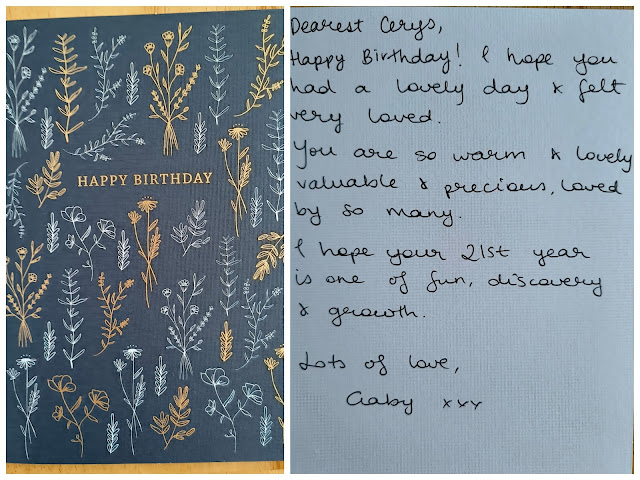 HAPPY BIRTHDAY
Dearest Cerys,
Happy Birthday! I hope you
had a lovely day & felt
very loved.
You are so warm & lovely
valuable & precious, loved
by so many.
I hope your 21st year
is one of fun, discovery
& growth.
Lots of love,
Gaby xxx